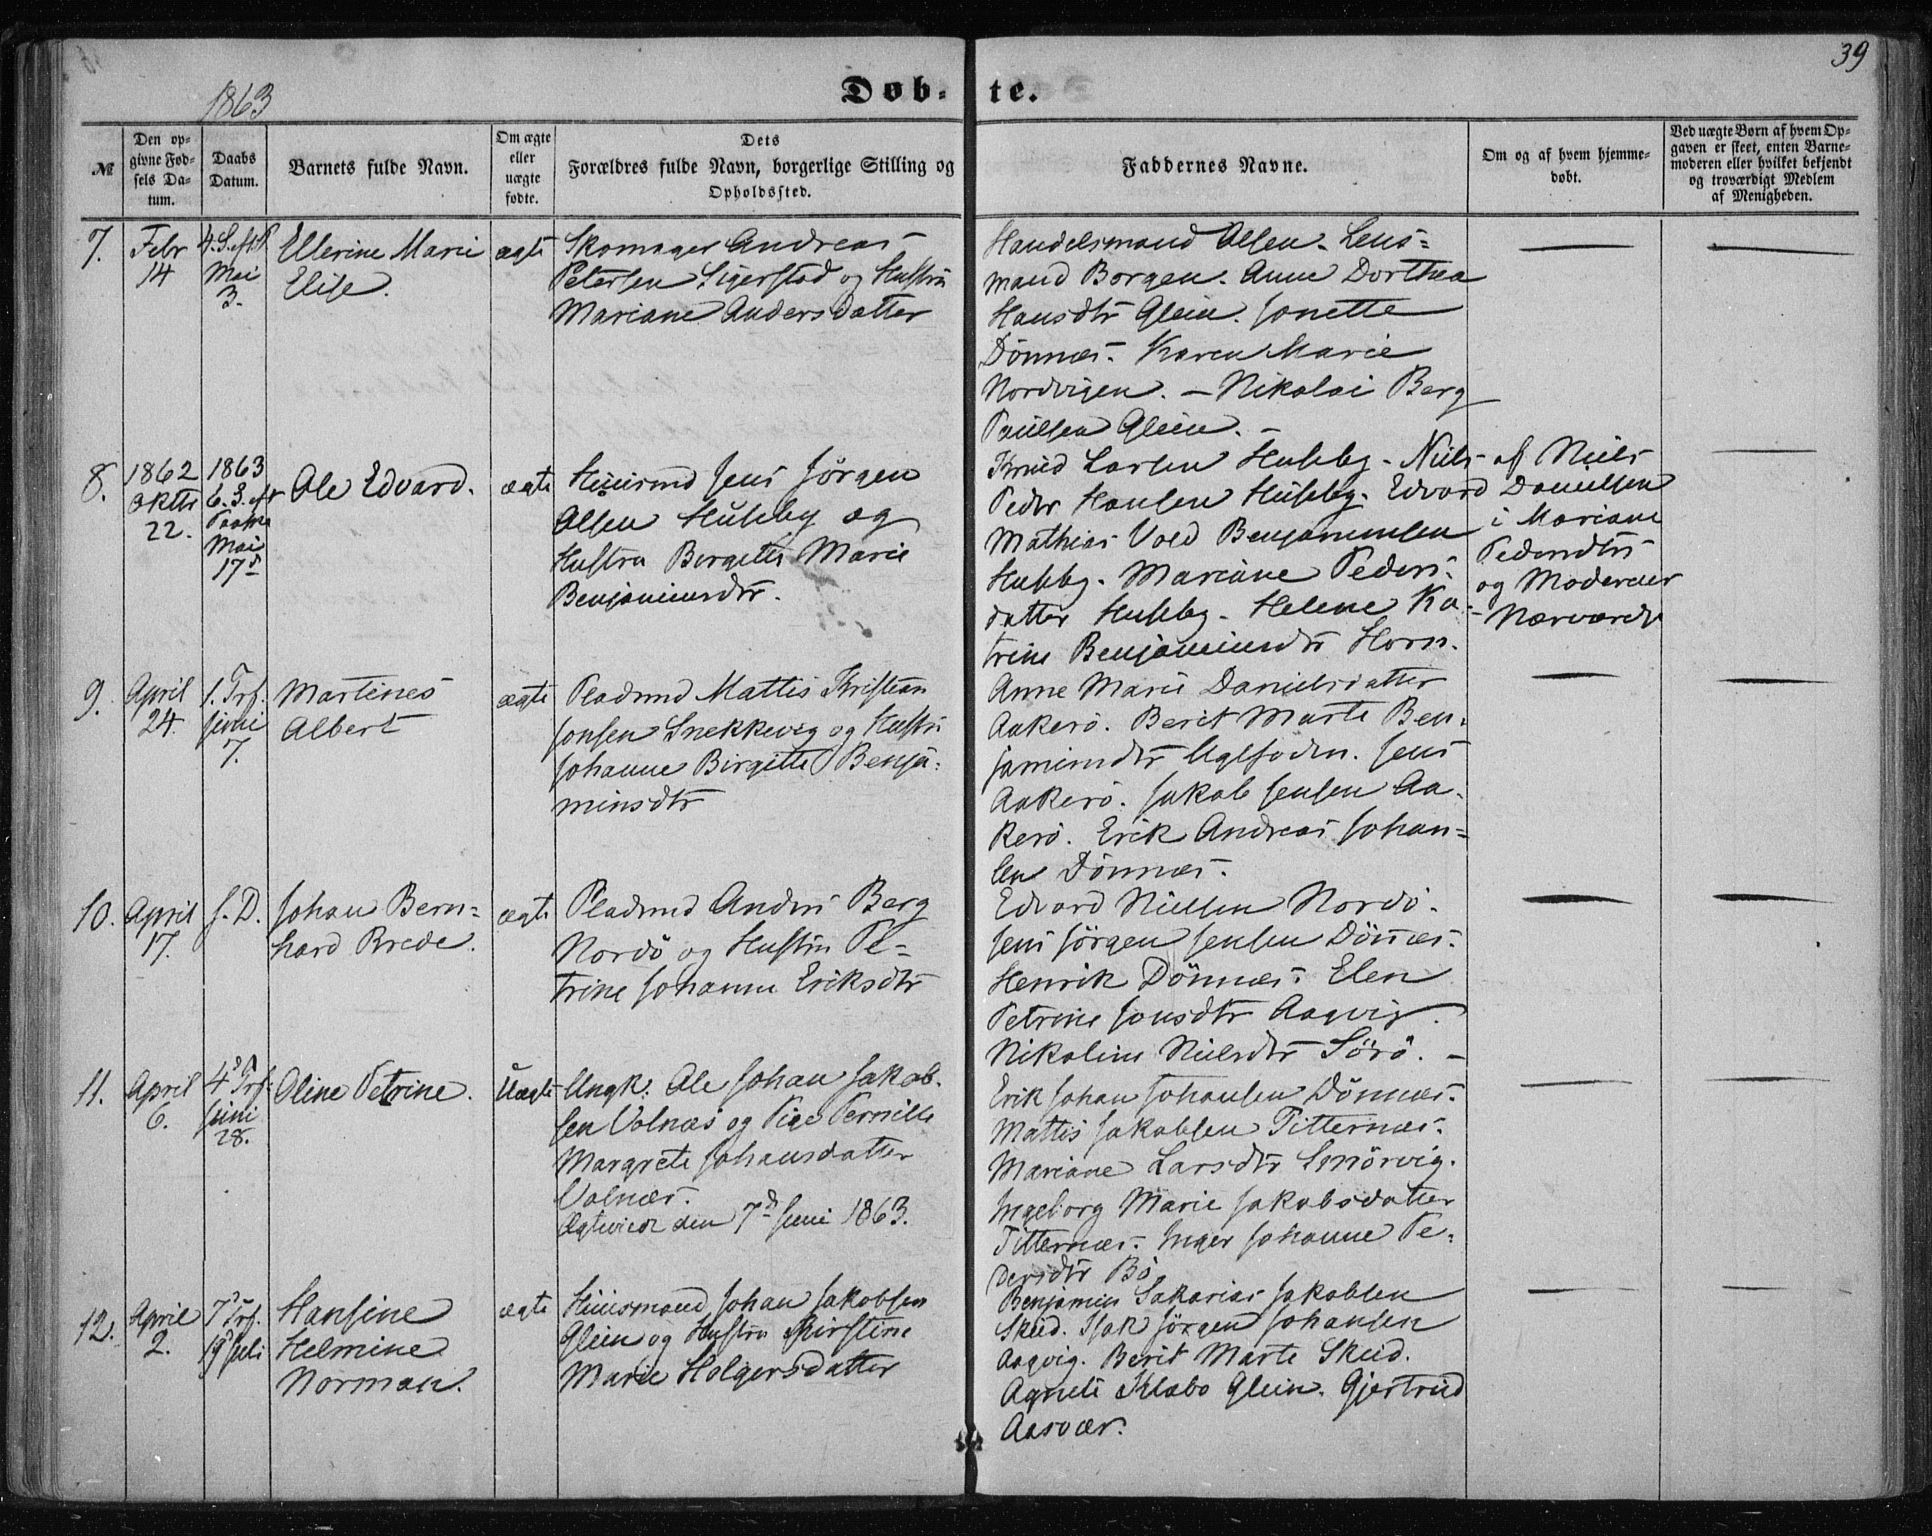 39
1863
Døb-te.
№
Den op-
givne Fød-
sels Da-
tum.
Daabs
Datum.
Barnets fulde Navn.
Om ægte
eller
uægte
fødte.
Dets
Forældres fulde Navn, borgerlige Stilling og
Opholdssted.
Faddernes Navne.
Om og af hvem hjemme-
døbt.
Ved uægte Børn af hvem Op-
gaven er skeet, enten Barne-
moderen eller hvilket bekjendt
og troværdigt Medlem
af Menigheden.
7.
Febr
14
4. S. eft. P.
Mai
3.
Ellerine Marie
Elise.
ægte
Skomager Andreas
Petersen Sigerstad og Hustru
Mariane Andersdatter
Handelsmand Olsen. Lens-
mand Borgen. Anne Dorthea
Hansdtr Glein. Jonette
Dönnæs. Karen Marie
Nordvigen. - Nikolai Berg
Paulsen Glein. -
8.
1862
Oktbr
22.
1863
6. S. eft
Paaske
Mai
17d
Ole Edvard.
ægte
Huusmd Jens Jörgen
Olsen Husby og
Hustru Bergitte Marie
Benjaminsdtr.
Knud Larsen Husby. Niels
Peder Hansen Husby. Edvard
Mathias Vold Benjaminsen
Husby. Mariane Peders-
datter Husby. Helene Ka-
trine Benjaminsdtr Horn.
af Niels
Danielsen
i Mariane
Pedersdtrs
og Moderens
Nærværelse
9.
April
24.
1. Trf.
Juni
7.
Martines
Albert
ægte
Pladsmd Mattis Kristian
Jonsen Snekkevig og Hustru
Johanne Birgitte Benja-
minsdtr
Anne Marie Danielsdatter
Aakerö. Berit Marte Ben-
jaminsdtr Uglfoden. Jens
Aakerö. Jakob Jensen Aa-
kerö. Erik Andreas Johan-
sen Dönnæs.
10.
April
17.
S. D.
Johan Bern-
hard Brede.
ægte
Pladsmd Anders Berg
Nordö og Hustru Pe-
trine Johanne Eriksdtr
Edvard Nielsen Nordö.
Jens Jörgen Jensen Dönnæs.
Henrik Dönnæs. Elen
Petrine Jonsdtr Aagvig.
Nikoline Nielsdtr Sörö. -
11.
April
6.
4d Trf.
Juni
28.
Oline Petrine.
Uægte
Ungk. Ole Johan Jakob-
sen Valnæs og Pige Pernille
Margrete Johansdatter
Valnæs.
Ægteviede den 7d Juni 1863.
Erik Johan Johansen Dönnæs.
Mattis Jakobsen Titternæs.
Mariane Larsdtr Smörvig.
Ingeborg Marie Jakobsdatter
Titternæs. Inger Johanne Pe-
dersdtr Bö.
12.
April
2.
7d Trf.
19d Juli
Hansine
Helmine
Norman.
ægte
Huusmand Johan Jakobsen
Glein og Hustru Kirstine
Marie Holgersdatter
Benjamin Sakarias Jakobsen
Skeid. Isak Jörgen Johansen
Aagvig. Berit Marte Skeid.
Agnete Klæbo Glein. Gjertrud
Aasvær.